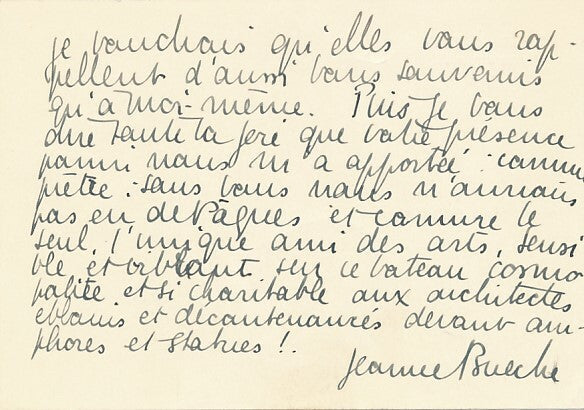 je vouchais qu'elles vous rap-
pellent d'aussi bons souvenirs
qu'à moi-même. Puis je vous
dire toute la joie que votre présence
parmi nous m'a apportée : comme
prêtre : sans vous nous n'aurions
pas eu de Pâques et comme le
seul, l'unique ami des arts, sensi
ble et vibrant sur ce bateau cosmo
polite et si charitable aux architectes
éblouis et décontenancés devant am-
phores et statues !.
Jeanne Bueche